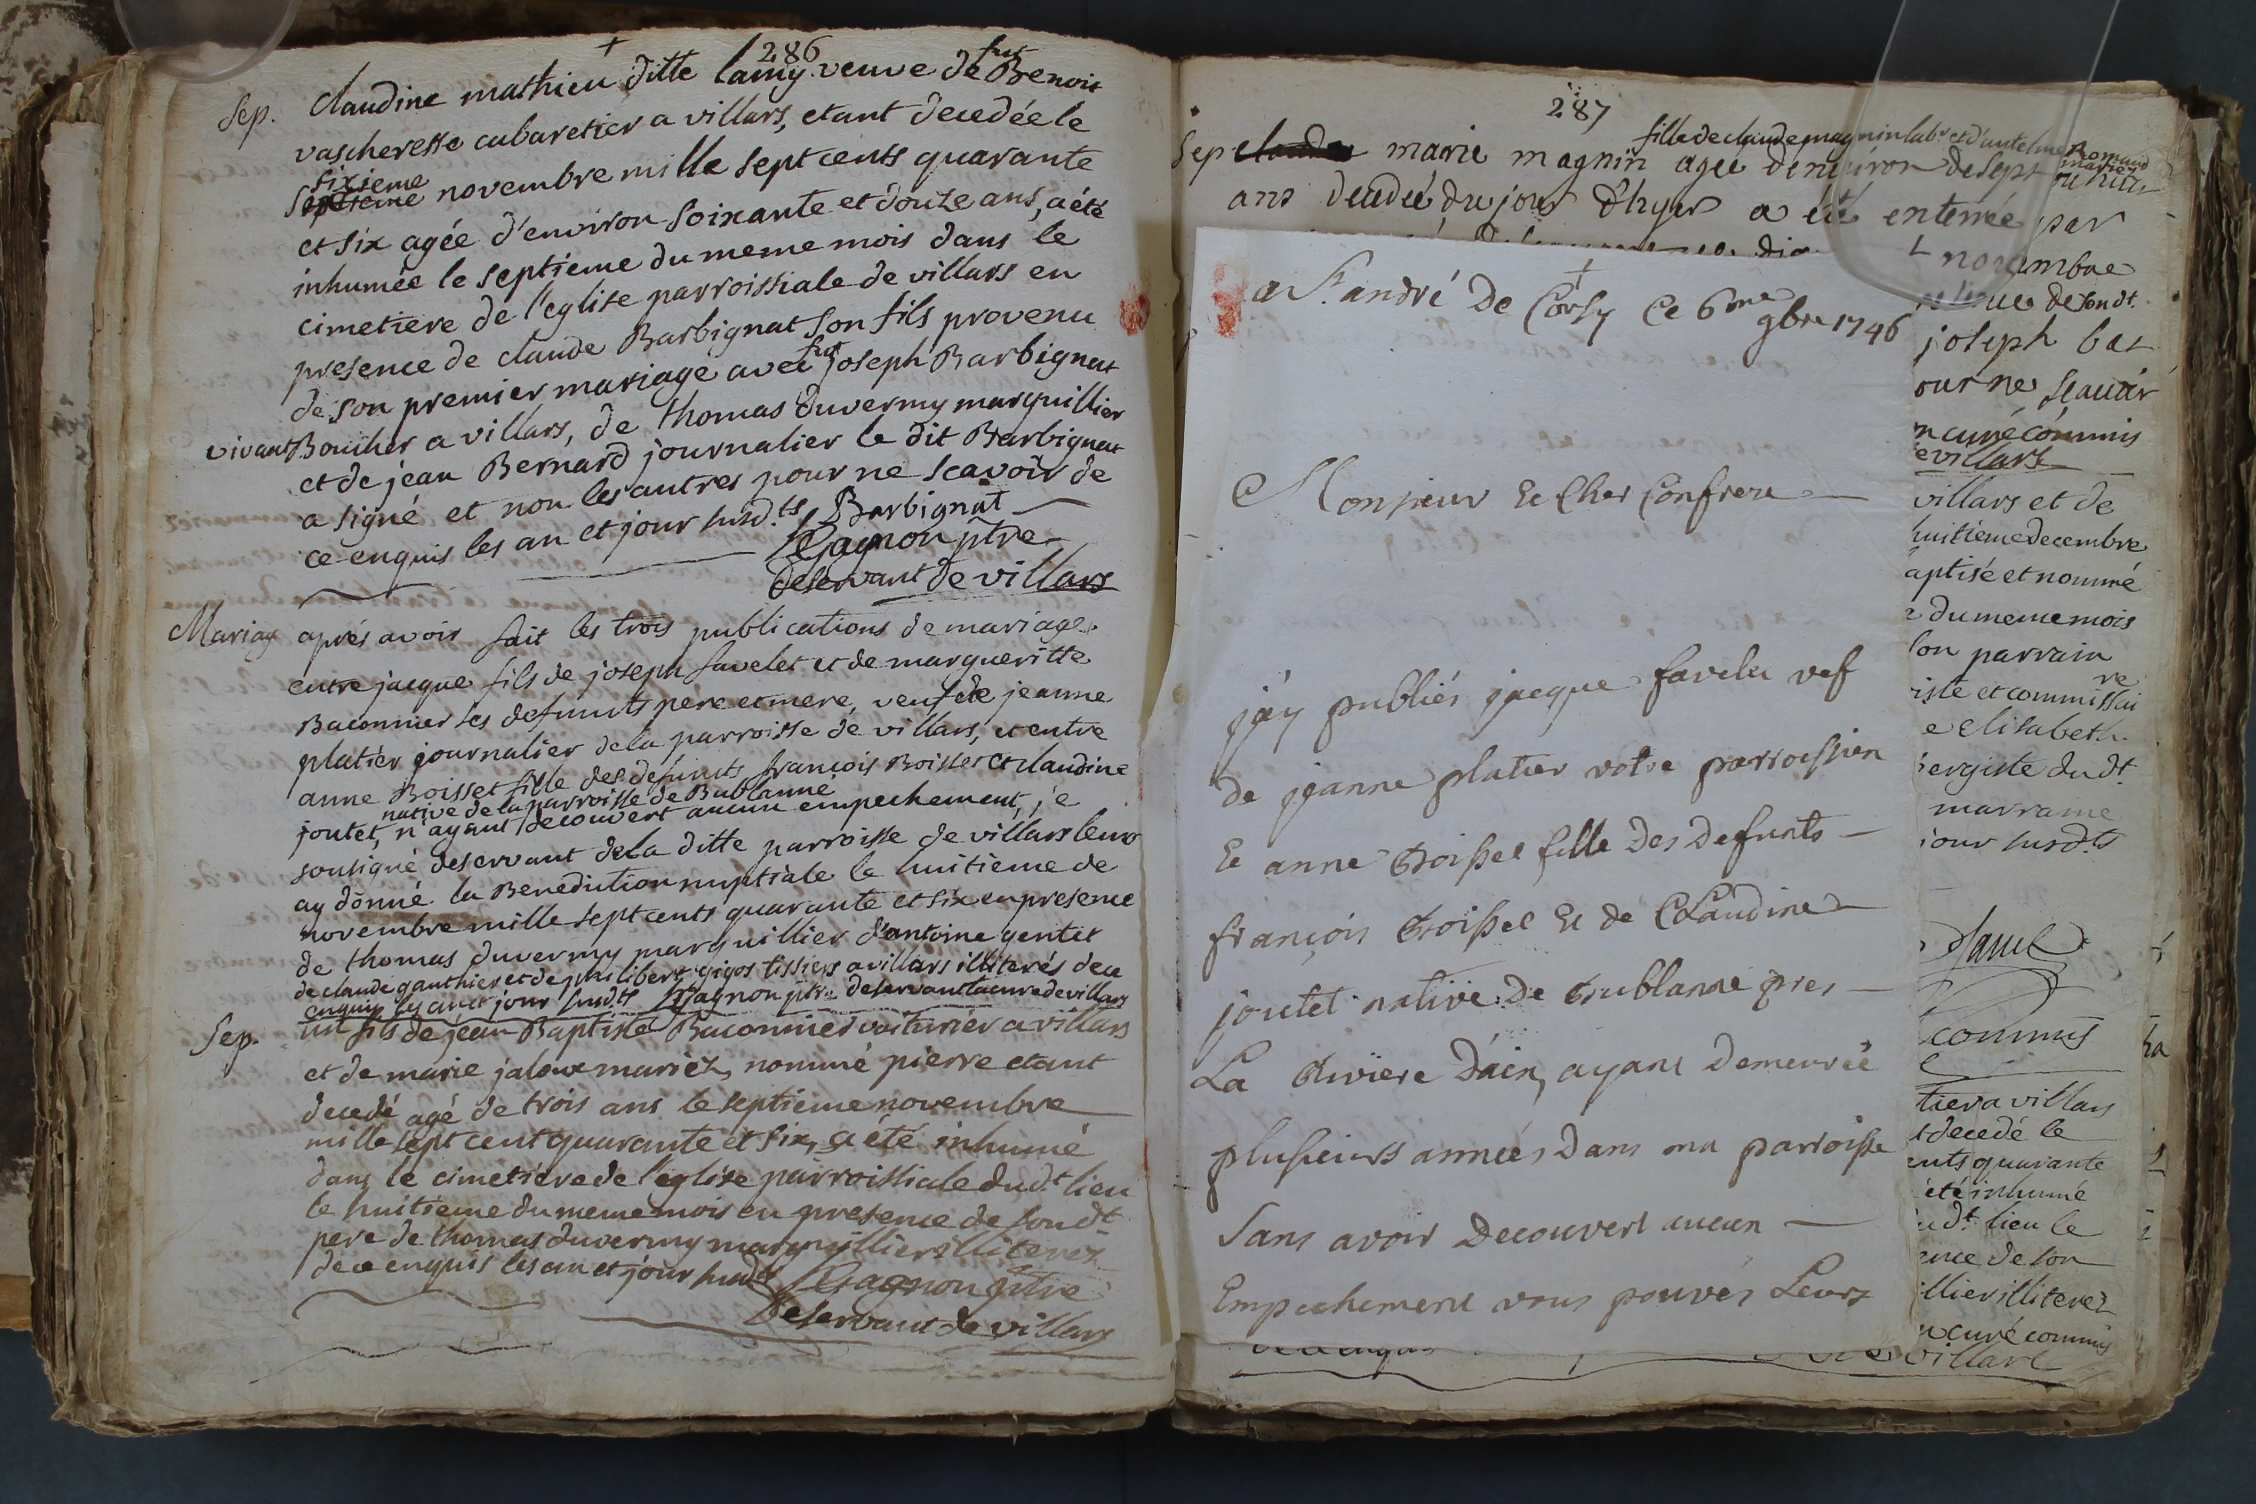 286
Sep. Claudine mathieu ditte lamy veuve de fut Benoit
vascheresse cabaretier a villars, etant decedée le
sixieme
septieme novembre mille sept cents quarante
et six agée d'environ soixante et douze ans, a été
inhumée le septieme du meme mois dans le
cimetiere de l'eglise parroissiale de villars en
presence de claude Barbignat son fils provenu
de son premier mariage avec fut joseph Barbignat
vivant Boucher a villars, de thomas duvermy marguillier
et de jean Bernard journalier le dit Barbignat
a signé et non les autres pour ne scavoir de
ce enquis les an et jour susd.ts Barbignat
Gagnon ptre
deservant de villars
Mariag aprés avoir fait les trois publications de mariage
entre jacque fils de joseph favelet et de margueritte
Baconnier ses defunts pere et mere, veuf de jeanne
platier journalier de la parroisse de villars, et entre
anne Boisset fille des defunts françois Boisset et claudine
native de la parroisse de Bublanne
joutet, n'ayant decouvert aucun empechement, j'e
sousigné deservant de la ditte parroisse de villars leurs
ay donné la Benediction nuptiale le huitieme de
novembre mille sept cents quarante et six en presence
de thomas duvermy marguillier d'antoine gentet
de claude gauthier et de philibert gigos tissiers a villars illiterés de ce
enquis les an et jour susd.ts Gagnon ptre deservant la cure de villars
Sep. un fils de jean Baptiste Baconnier voiturier a villars
et de marie jaloux mariéz, nommé pierre etant
decedé agé de trois ans le septieme novembre
mille sept cent quarante et six, a été inhumé
dans le cimetiere de l'eglise parroissiale dud.t lieu
le huitieme du meme mois en presence de son d.t
pere de thomas duvermy marguillier illiterés
de ce enquis les an et jour susd.ts Gagnon ptre
Deservant de villars
287
fille de claude magnin lab.r et d'antelme Romand
mariez
Sep marie magnin agée d'environ de sept
ans decedée du jour d'hyer a été enterrée par
a S.t andré de Corsy ce 6me 9bre 1746
Monsieur et cher Confrere
j'ay publiés jacque favelet vef
de jeanne platier votre parroissien
et anne Boisset fille des defunts
françois Boisset et de Claudine
joutet native de Bublanne pres
La Riviere d'ain, ayant demeurée
plusieurs années dans ma parroisse
Sans avoir Decouvert aucun
Empechement vous pouvés Leurs
novembre
de son d.t
joseph bat
our ne scavoir
n curé commis
e villars
villars et de
huitieme decembre
aptisé et nommé
e du meme mois
son parrain
re
iste et commissai
e elisabeth
bergiste du d.t
marraine
jour susd.ts
commis
tier a villars
t decedé le
ents quarante
été inhumé
ud.t lieu le
ence de son
illier illiterez
u curé commis
villars